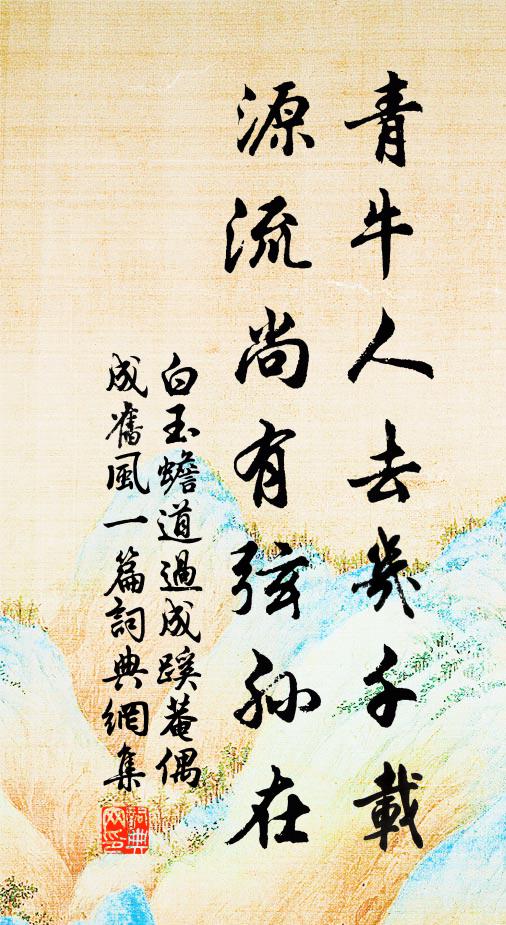 青牛人去几千載
源流尚有弦孙在
白玉蟾道過成蹊菴偶
成舊風一篇詞典網集
詞典
网印